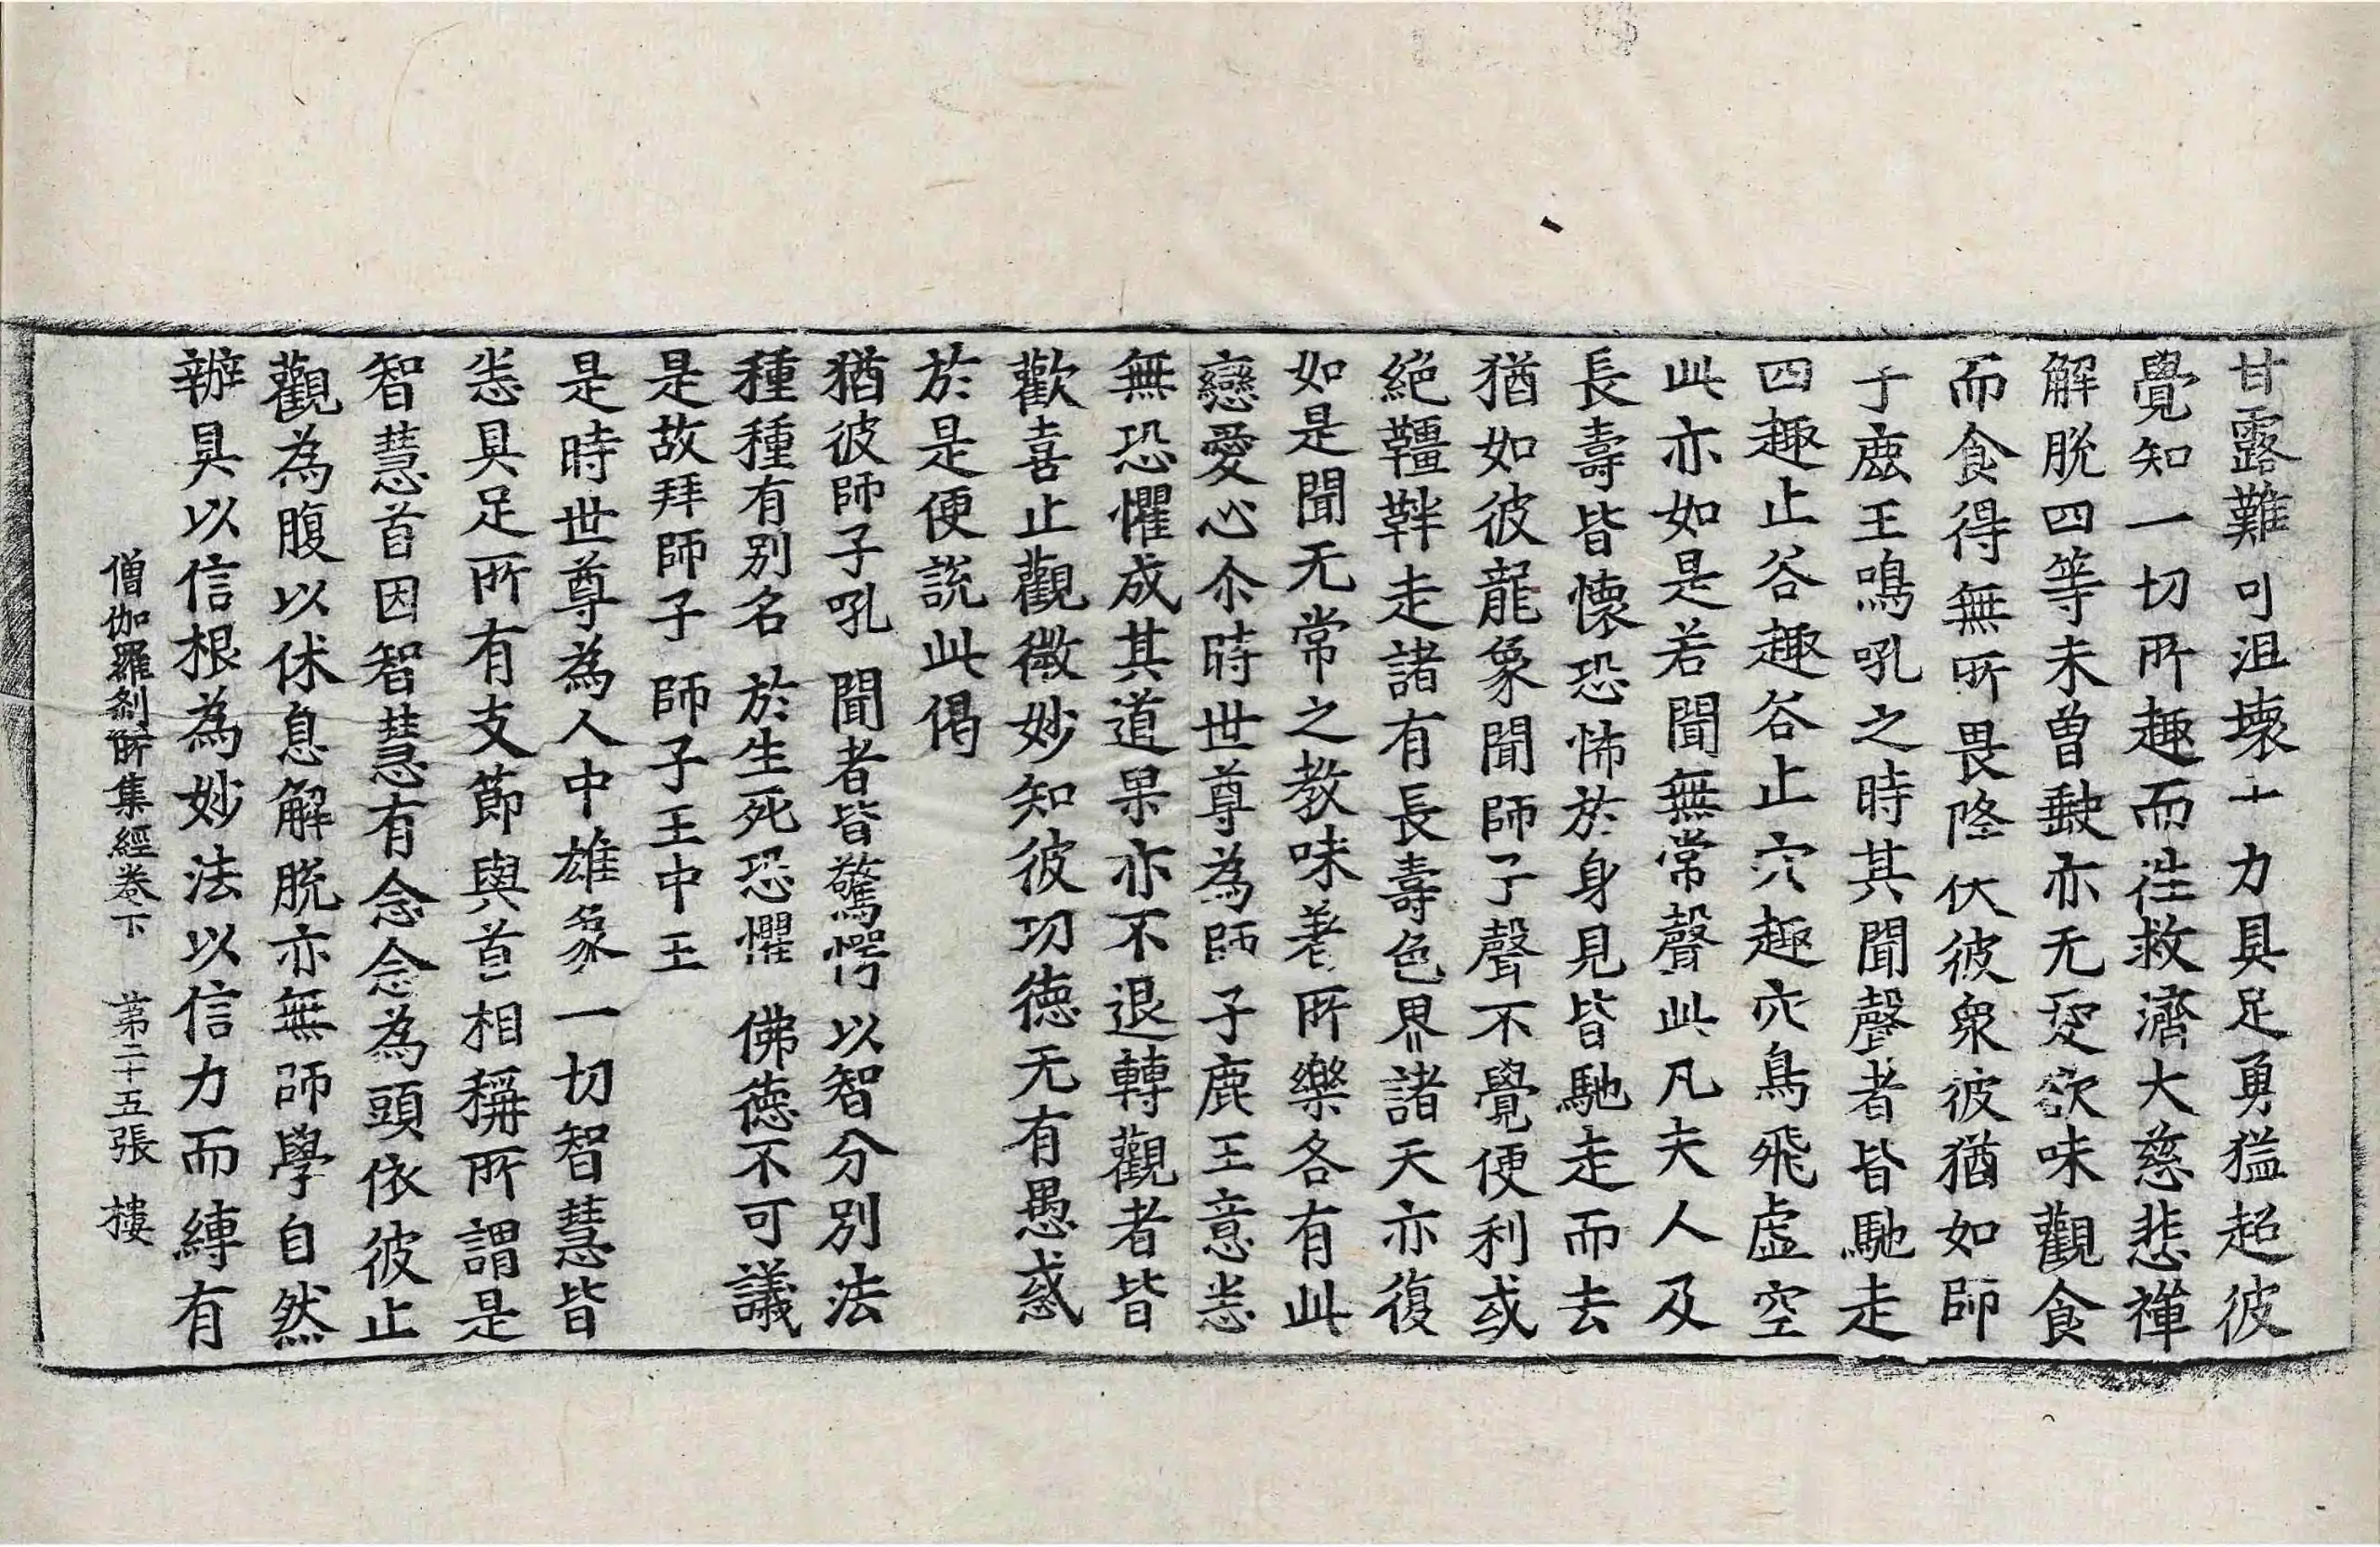 甘露難可沮壞十力具足勇猛超彼
覺知一切所趣而往救濟大慈悲禪
解脫四等未曾䴡亦无愛欲味觀食
而食得無所畏降伏彼衆彼猶如師
子鹿王鳴吼之時其聞聲者皆馳走
四趣止谷趣谷止穴趣穴鳥飛虛空
此亦如是若聞無常聲此凡夫人及
長壽皆懷恐怖於身見皆馳走而去
猶如彼龍象聞師子聲不覺便利或
絕韁靽走諸有長壽色界諸天亦復
如是聞无常之教味著所樂各有此
戀愛心尒時世尊為師子鹿王意恙
無恐懼成其道果亦不退轉觀者皆
歡喜止觀微妙知彼功德无有愚惑
於是便說此偈
猶彼師子吼 聞者皆驚愕 以智分別法
種種有別名 於生死恐懼 佛德不可議
是故拜師子 師子王中王
是時世尊為人中雄象一切智慧皆
恙具足所有支節與首相稱所謂是
智慧首因智慧有念念為頭依彼止
觀為腹以休息解脫亦無師學自然
辦具以信根為妙法以信力而縛有
僧伽羅剎所集經卷下 第二十五張 樓